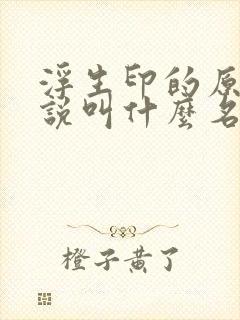 浮生印的原
說叫什麼名
橙子黃了